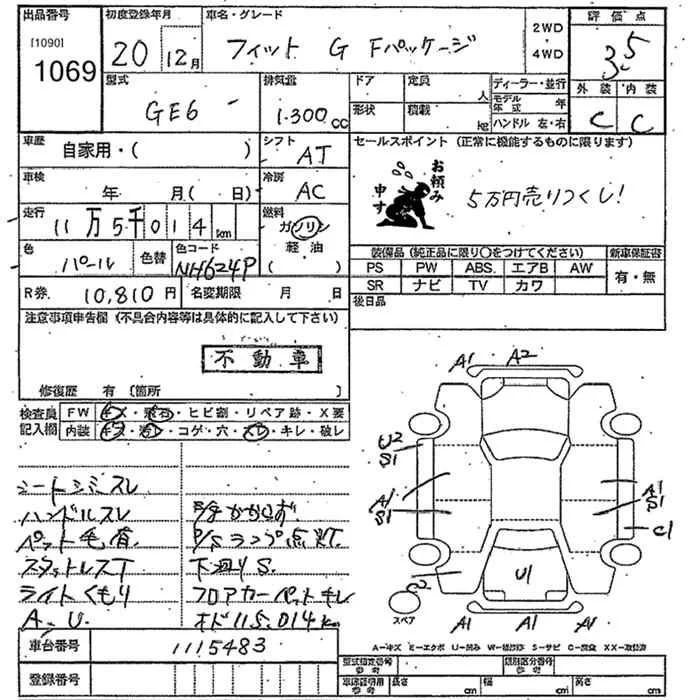 出品番号
[1090]
1069
初度登録年月
20 12月
車名・グレード
フィット G Fパッケージ
2WD
4WD
評価点
3.5
型式
GE6
排気量
1.300cc
ドア
定員
人
形状
積載
kg
ディーラー・並行
モデル年式 年
ハンドル 左・右
外装 内装
C C
車歴
自家用・( )
シフト
AT
セールスポイント (正常に機能するものに限ります)
お頼み申す
5万円売りつくし!
車検
年 月( 日)
冷房
AC
走行
11万5千014km
燃料
ガソリン
軽油
( )
色
パール
色替
色コード
NH624P
装備品(純正品に限り○をつけてください)
新車保証書
PS PW ABS. エアB AW
SR ナビ TV カワ
有・無
R券 10,810円
名変期限 月 日
後日品
注意事項申告欄(不具合内容等は具体的に記入して下さい)
不動車
修復歴 有〔箇所 〕
検査員記入欄
FW キズ・飛石・ヒビ割・リペア跡・X要
内装 キズ・汚れ・コゲ・穴・スレ・キレ・破レ
シートシミスレ
ハンドルスレ
ペット毛有
P/Sランプ点灯
スタッドレスT
下廻りS.
ライトくもり
フロアカーペットキレ
A.U.
オド115.014km
A1 A2
U2
S1
A1
S1
A1
S1
C1
C2
U1
A1 A1 A1
スペア
車台番号
1115483
登録番号
A-キズ E-エクボ U-凹み W-補修跡 S-サビ C-腐食 XX-交換済
型式指定番号
参考
類別区分番号
参考
車庫証明用
参考
長さ cm
幅 cm
高さ cm